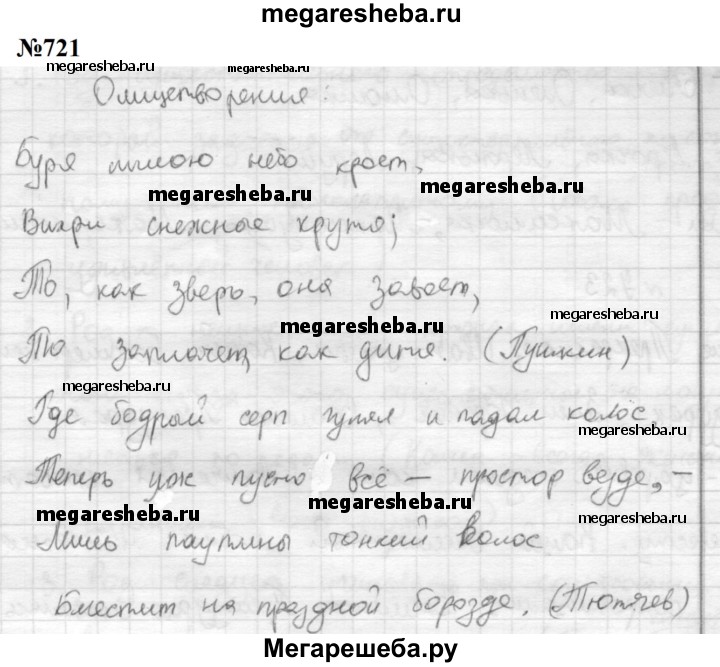 megaresheba.ru
№721
megaresheba.ru megaresheba.ru
Олицетворения:
Буря мглою небо кроет,
megaresheba.ru megaresheba.ru
Вихри снежные крутя;
То, как зверь, она завоет,
megaresheba.ru megaresheba.ru
То заплачет, как дитя. (Пушкин)
megaresheba.ru
Где бодрый серп гулял и падал колос,
megaresheba.ru megaresheba.ru
Теперь уж пусто всё – простор везде, –
megaresheba.ru megaresheba.ru
Лишь паутины тонкий волос
Блестит на праздной борозде. (Тютчев)
Мегарешеба.ру